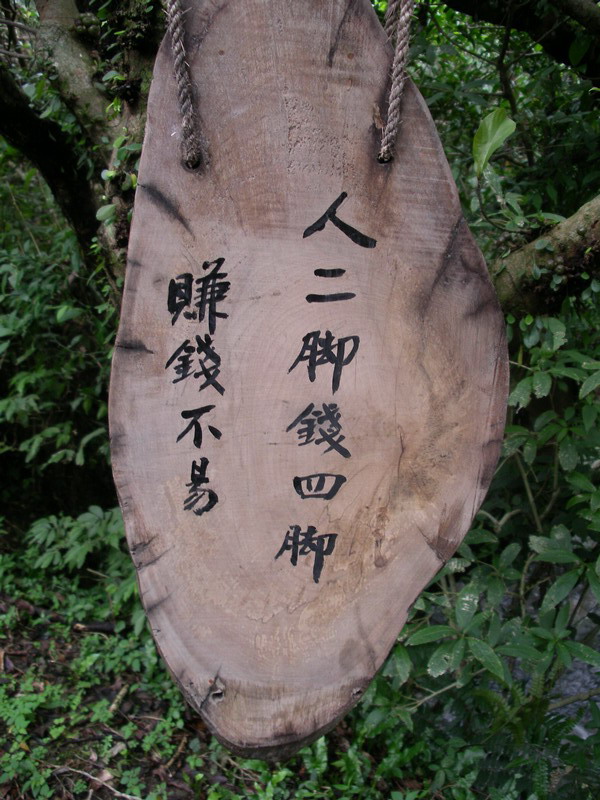 人二脚錢四脚
賺錢不易